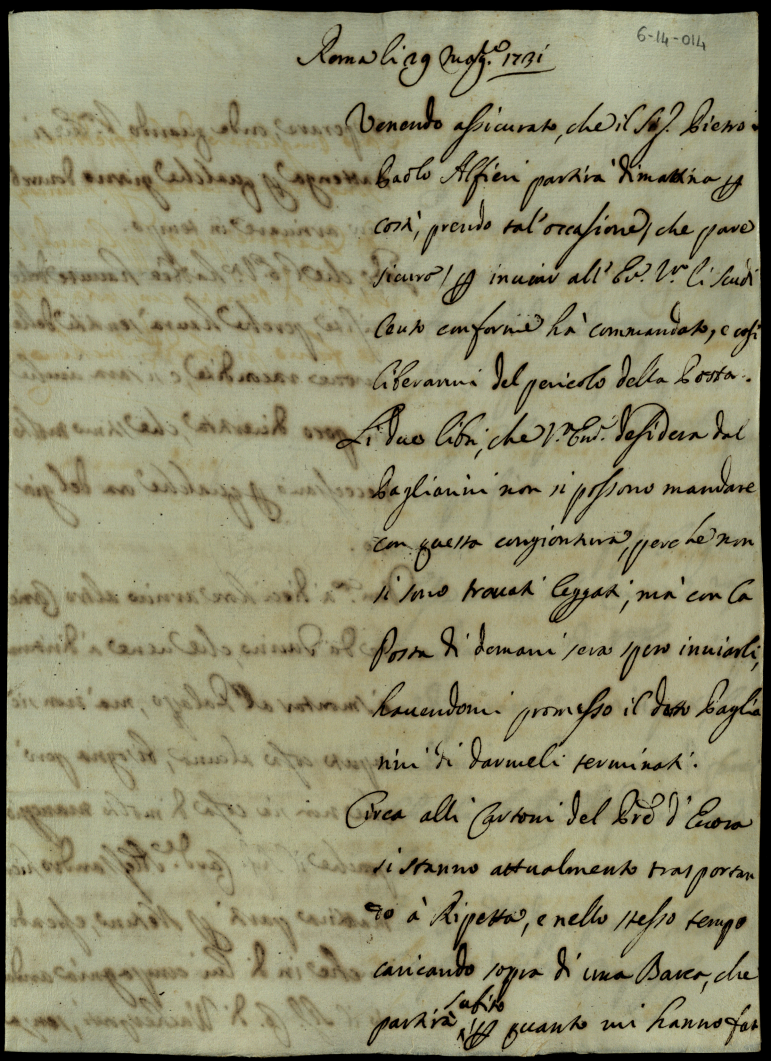 6-14-014
Roma li 29 Mag.º 1731
Venendo assicurato, che il Sig. Pietro
Paolo Alfieri partirà dimattina p
costì, prendo tal'occasione, che pare
sicura, p inviar all' Em. V.ra li scudi
Cento conforme hà commandato, e così
liberarmi del pericolo della Posta.
Li due libri, che V.ra Em. desidera dal
Pagliarini non si possono mandare
con questa congiontura, perche non
si sono trovati leggati, mà con la
Posta di domani sera spero inviarli,
havendomi promesso il detto Paglia
rini di darmeli terminati.
Circa alli Cartoni del Pre d'Evora
si stanno attualmente trasportan
do à Ripetta, e nello stesso tempo
caricando sopra di una Barca, che
partirà subito p quanto mi hanno fat